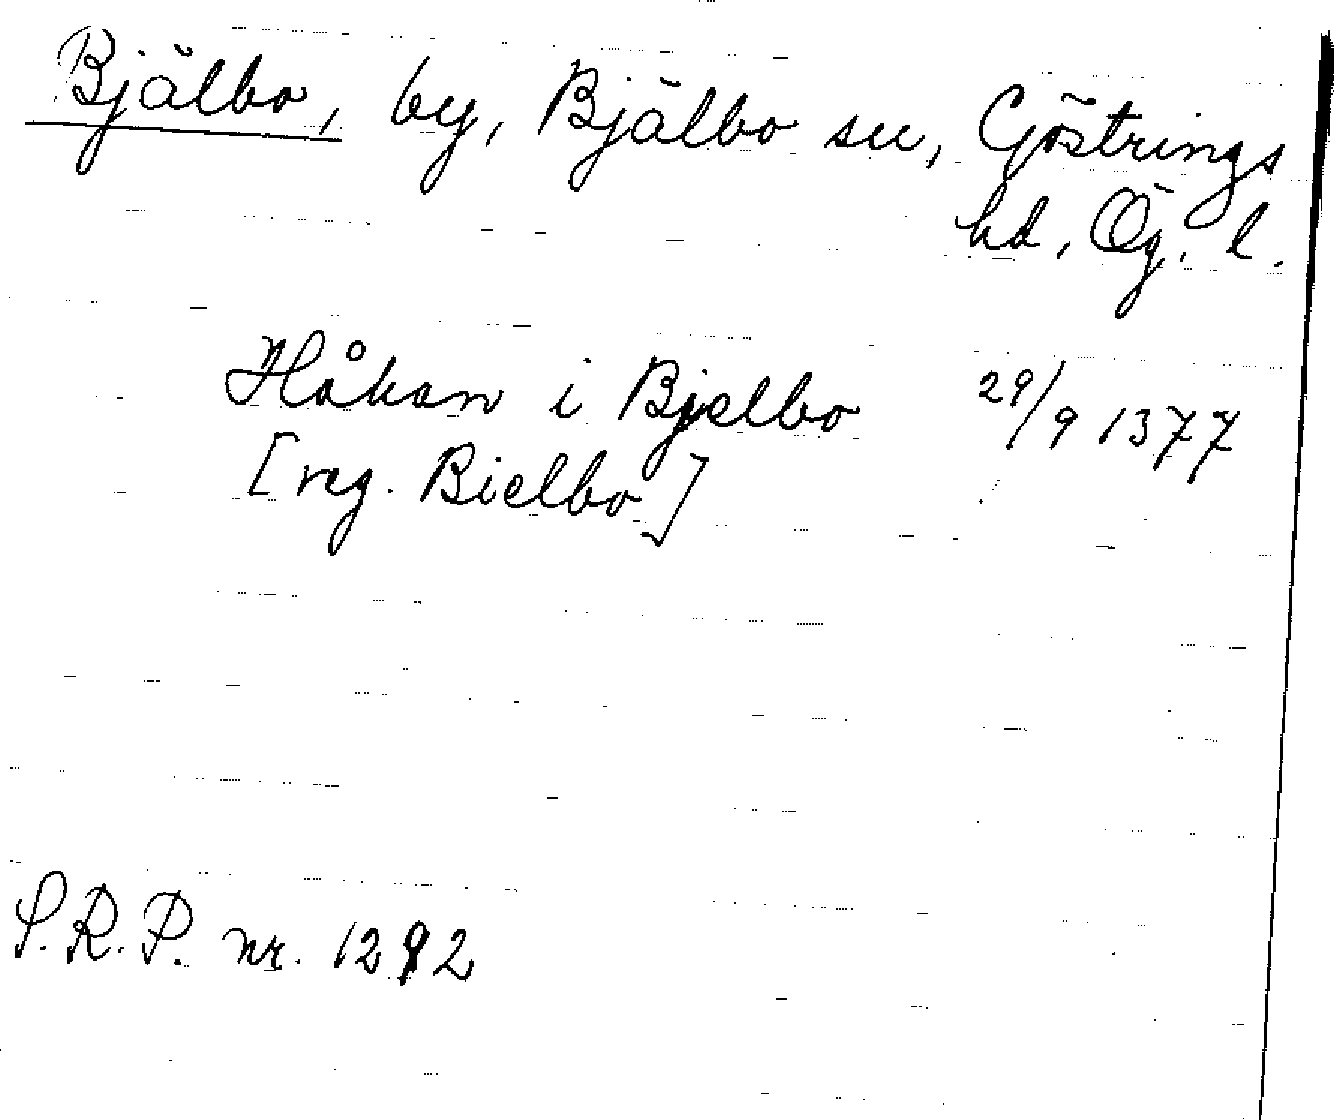 Bjälbo, by, Bjälbo sn, Göstrings
hd, Ög. l.
Håkan i Bjelbo 29/9 1377
[reg. Bielbo]
S.R.P. nr. 1292